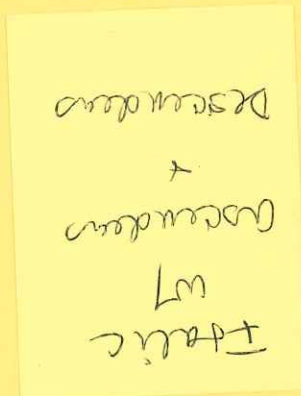 Italic
w/
ascenders
+
Descenders